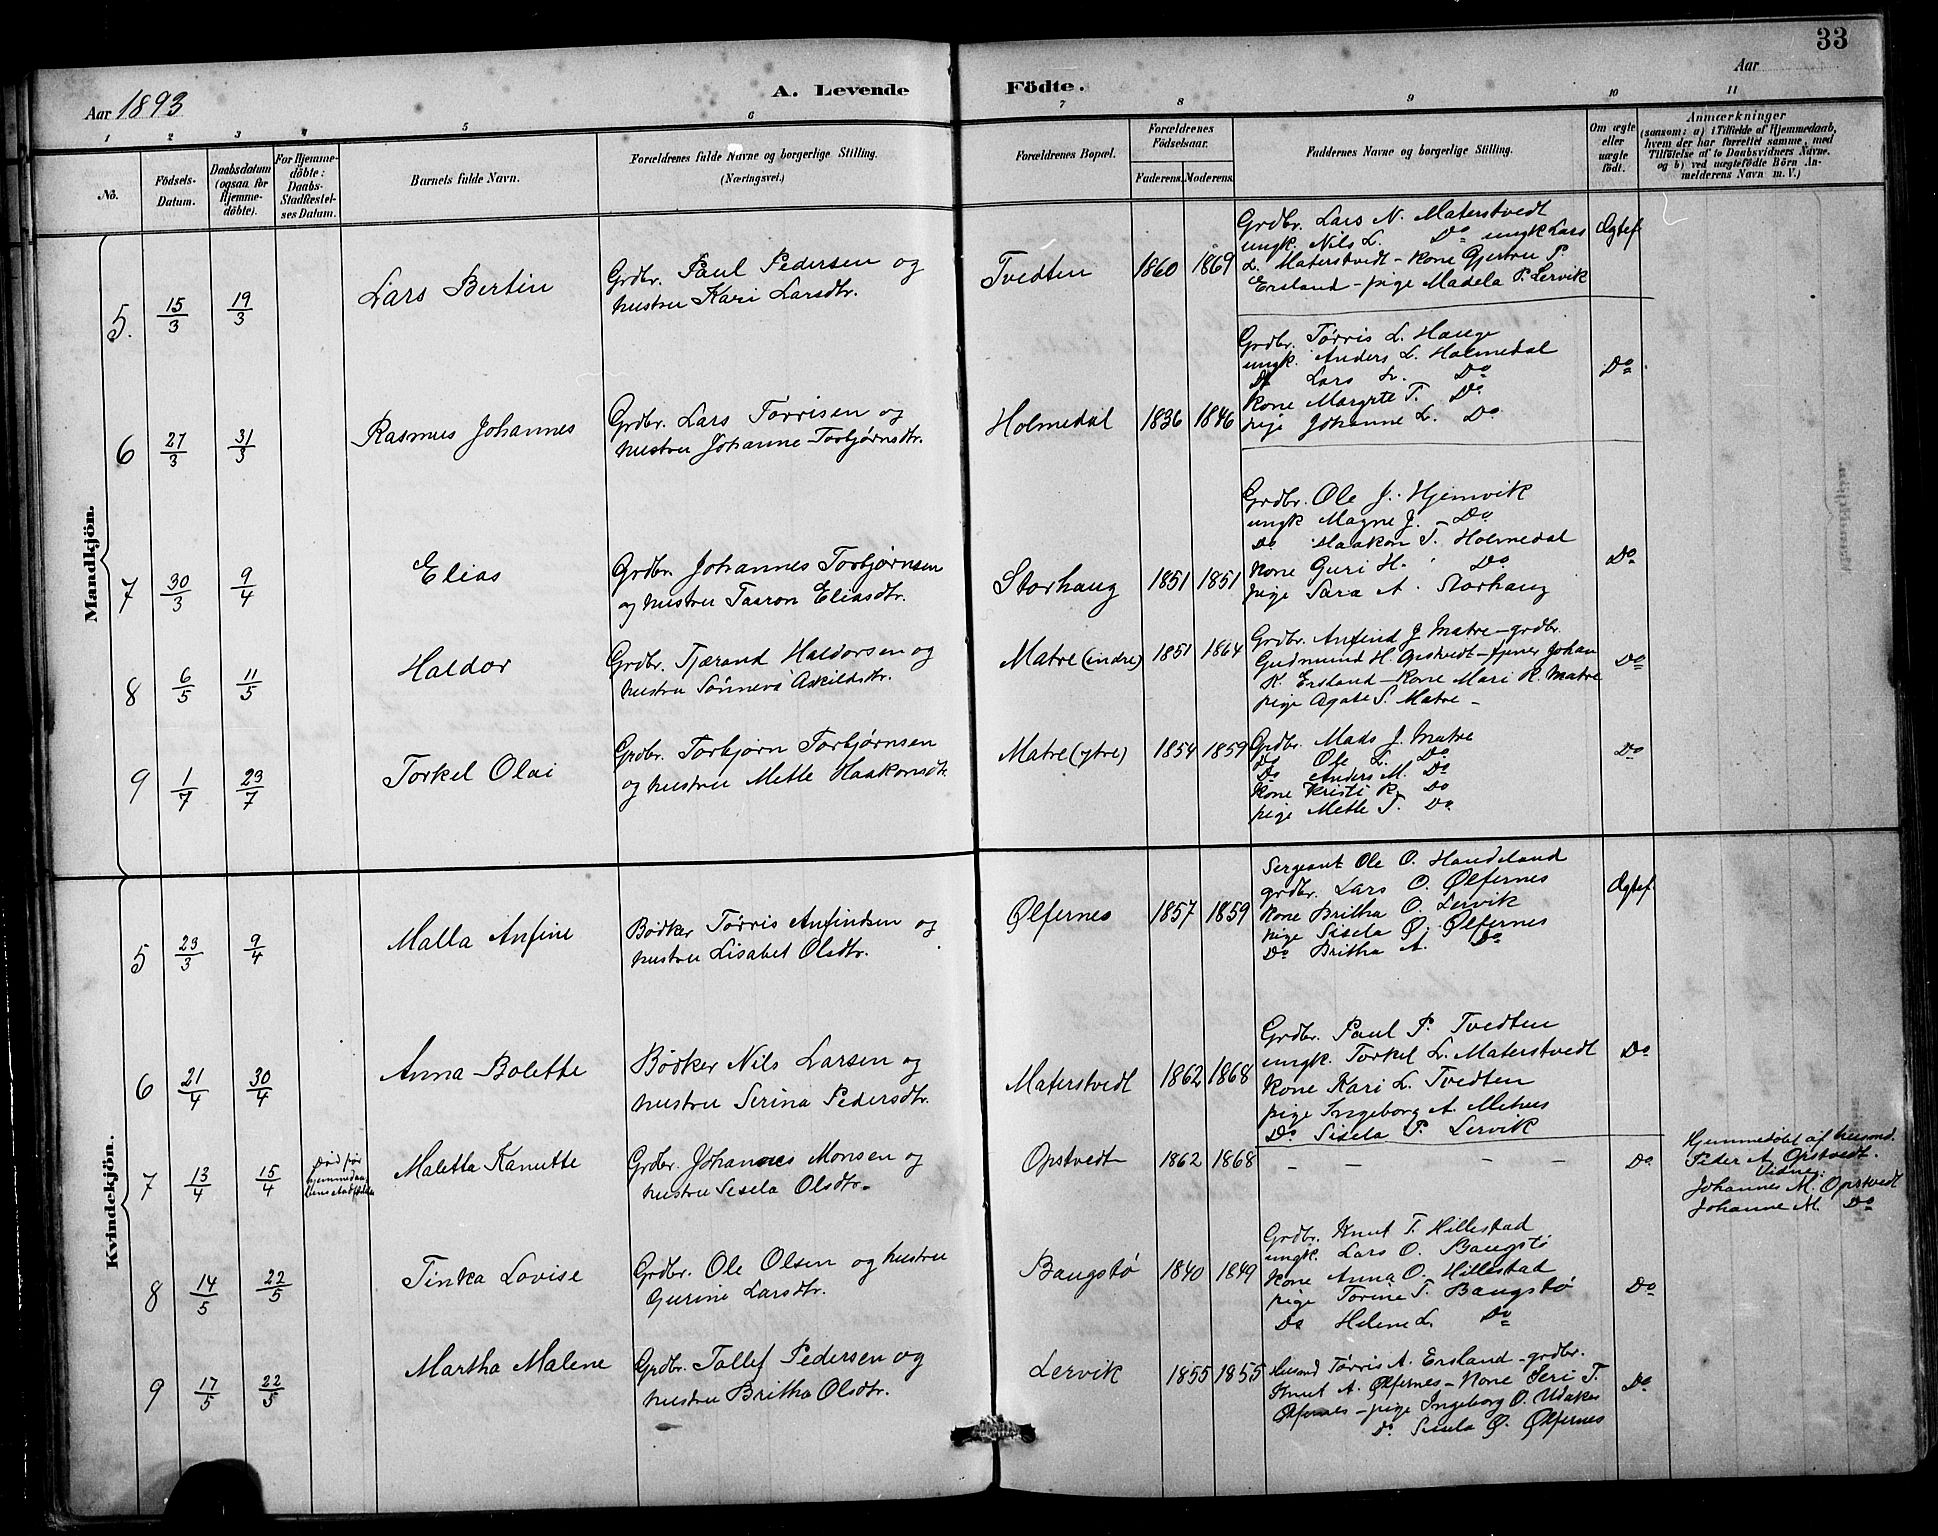 33
Aar 1893
A. Levende Födte.
Aar
1 2 3 4 5 6 7 8 9 10 11
Nô.
Födsels-Datum.
Daabsdatum (ogsaa for Hjemme-döbte).
For Hjemme-döbte: Daabs-Stadfæstel-ses Datum.
Barnets fulde Navn.
Forældrenes fulde Navne og borgerlige Stilling.
(Næringsvei.)
Forældrenes Bopæl.
Forældrenes Födselsaar.
Faderens. Moderens.
Faddernes Navne og borgerlige Stilling.
Om ægte eller uægte födt.
Anmærkninger
(saasom: a) i Tilfælde af Hjemmedaab, hvem der har forrettet samme, med Tilföielse af to Daabsvidners Navne, og b) ved uægtefödte Börn Anmelderens Navn m. V.)
Mandkjön.
5. 15/3 19/3 Lars Bertin
Grdbr. Paul Pedersen og
hustru Kari Larsdtr.
Tvedten 1860 1869
Grdbr. Lars N. Materstvedt
ungk. Nils L. Do ungk Lars
L. Materstvedt - kone Gjertru P.
Ersland - pige Madela P. Lervik
Ægtef
6 27/3 31/3 Rasmus Johannes
Grdbr. Lars Tørrisen og
hustru Johanne Torbjørnsdtr.
Holmedal 1836 1846
Grdbr. Tørris L. Hauge
ungk. Anders L. Holmedal
Do Lars L. Do
Kone Margrte T. Do
pige Johanne L. Do
Do
7 30/3 9/4 Elias
Grdbr. Johannes Torbjørnsen
og hustru Taaron Eliasdtr.
Storhaug 1851 1851
Grdbr. Ole J. Hjemvik
ungk Magne J. - Do
Do Haakon T. Holmedal
Kone Guri H. Do
pige Sara A. Storhaug
Do
8 6/5 11/5 Haldor
Grdbr. Tjærand Haldorsen og
hustru Sønneva Askildsdtr.
Matre (indre) 1851 1864
Grdbr. Anfind J Matre - grdbr.
Gudmund H. Opstvedt - tjener Johan
K. Ersland - Kone Mari R. Matre
pige Agate S. Matre -
Do
9 1/7 23/7 Torkel Olai
Grdbr. Torbjørn Torbjørnsen
og hustru Mette Haakonsdtr.
Matre (ytre) 1854 1859
Grdbr. Mads J. Matre
Do Ole L. Do
Do Anders M. Do
Kone Kristi R. Do
pige Mette T. Do
Do
Kvindekjön.
5 23/3 9/4 Malla Anfine
Bødker Tørris Anfindsen og
hustru Lisabet Olsdtr.
Ølfernes 1857 1859
Sergeant Ole O. Handeland
grdbr. Lars O. Ølfernes
Kone Britha O. Lervik
pige Sisela O. Ølfernes
Do Britha A. Do
Ægtef
6 21/4 30/4 Anna Bolette
Bødker Nils Larsen og
hustru Serina Pedersdtr.
Materstvedt 1862 1868
Grdbr. Paul P. Tvedten
ungk. Torkel L. Materstvedt
Kone Kari L. Tvedten
pige Ingeborg A. Mehus
Do. Sisela P. Lervik
Do
7 13/4 15/4 Død før
Maletta Kanutte
Grdbr. Johannes Monsen og
hustru Sesela Olsdtr.
Opstvedt 1862 1868
- - - - -
Do
Hjemmedøbt af husmd.
Peder A. Opstvedt.
Vidner:
Johannes M. Opstvedt
Johanne M. Do
8 14/5 22/5 Tinka Lovise
Grdbr. Ole Olsen og hustru
Gurine Larsdtr.
Baugstø 1840 1849
Grdbr. Knut T. Hillestad
ungk. Lars O. Baugstø
Kone Anna O. Hillestad
pige Torine T. Baugstø
Do Helene L. Do
Do
9 17/5 22/5 Martha Malene
Grdbr. Tollef Pedersen og
hustru Britha Olsdtr.
Lervik 1855 1855
Husmd Tørris A. Ersland - grdbr.
Knut A. Ølfernes - Kone Seri T.
Ølfernes - pige Ingeborg O. Utaker
Do. Sisela O. Ølfernes
Do